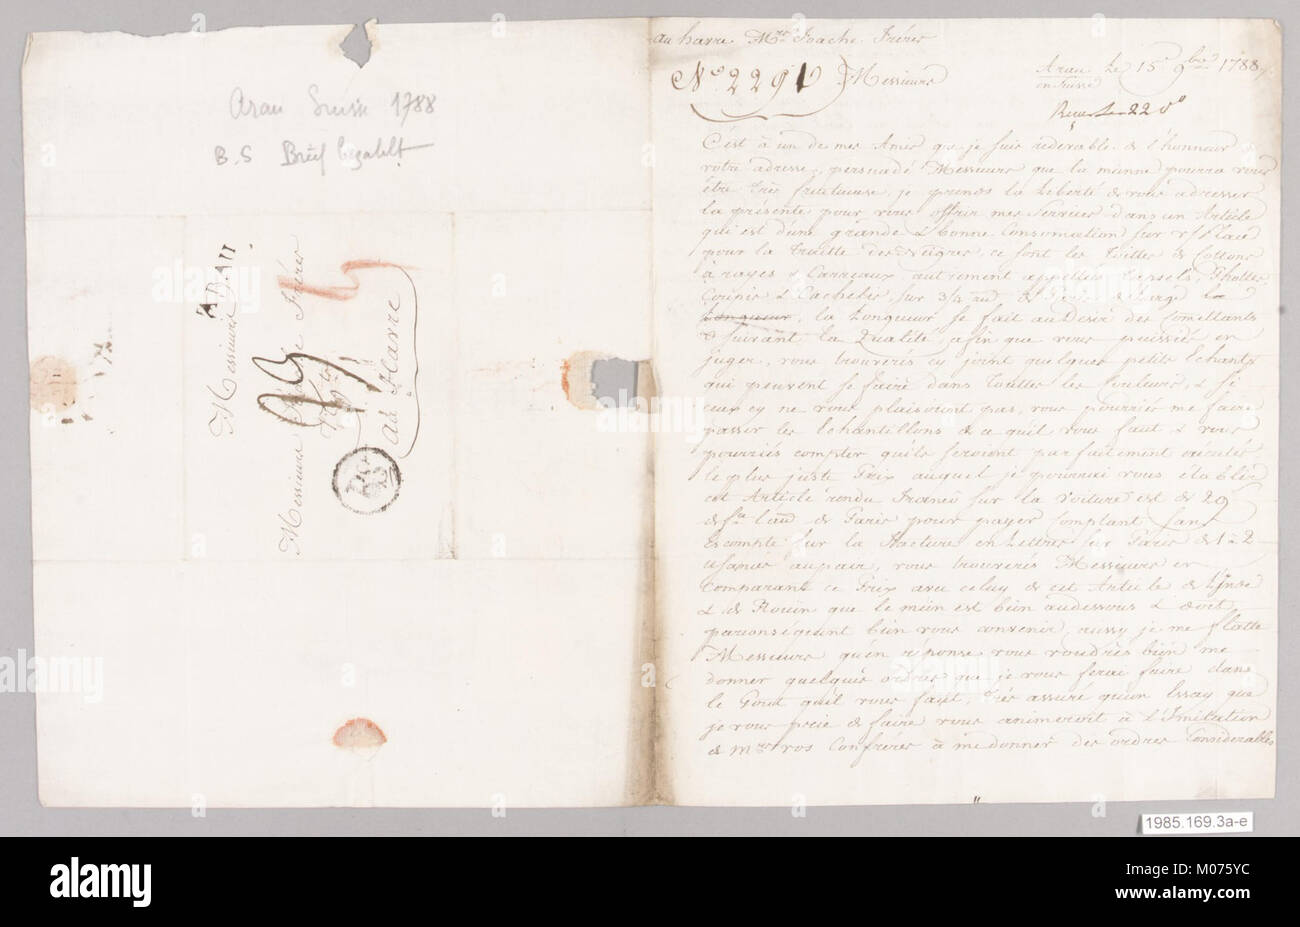 Arau Suisse 1788
B. S
ARAU
Messieurs
Messieurs Frères
au Havre
au havre Mrs. Foache Frères
No. 2291 Messieurs
Arau Le 15e 9bre 1788
en Suisse
22 do
C'est à un de mes Amis que je suis redevable de l'honneur de
votre adresse, persuadé Messieurs que la mienne pourra vous
être très fructueuse, je prends la Liberté de vous adresser
la présente pour vous offrir mes Services dans un Article
qui est d'une grande & bonne Consomation sur v/ Place
pour la Traitte des Neigres, ce sont les Toilles de Cottons
à rayes & Carreaux autrement appellés Tapsels,
Coupis & Cachelis, sur 3/4 de large
Longueur, la Longueur se fait au Desir des Comettants
& suivant la Qualité, afin que vous puissiés en
juger, vous trouverés cy joint quelques petits Echants
qui peuvent se faire dans Touttes les Couleurs, & si
ceux cy ne vous plaisoient pas, vous pourriés me faire
passer les Echantillons de ce qu'il vous faut & vous
pourriés compter qu'ils seroient parfaitement éxécutés
le plus juste Prix auquel je pourrai vous établir
cet Article rendu Franco sur la Voiture est de 29
s. l'au. de Paris pour payer Comptant Sans
Escompte sur la Facture en Lettres sur Paris de 1 à 2
usances au pair, vous trouverés Messieurs en
Comparant ce Prix avec celuy de cet Article de L'Inde
& de Rouen que le mien est bien audessous & doit
parconséquent bien vous convenir, aussy je me flatte
Messieurs qu'en réponse vous voudrés bien me
donner quelques ordres que je vous ferai faire dans
le Gout qu'il vous fayt, Très assuré qu'un Essay que
je vous prie de faire vous animeroit à l'Imitation
de Mrs vos Confrères à me donner des ordres Considerables
1985.169.3a-e
alamy
M075YC
www.alamy.com